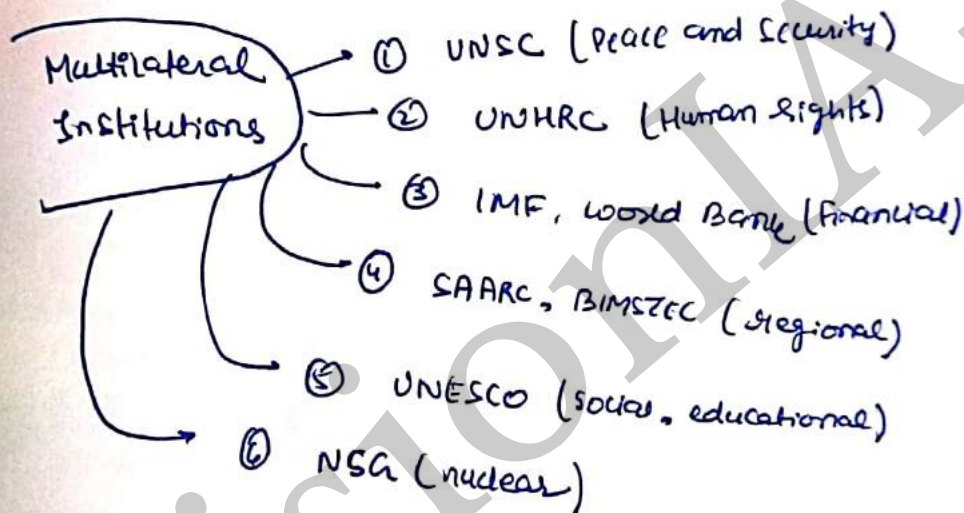 Multilateral
Institutions
① UNSC (Peace and Security)
② UNHRC (Human Rights)
③ IMF, World Bank (Financial)
④ SAARC, BIMSTEC (regional)
⑤ UNESCO (social, educational)
⑥ NSG (nuclear)
VisionIA